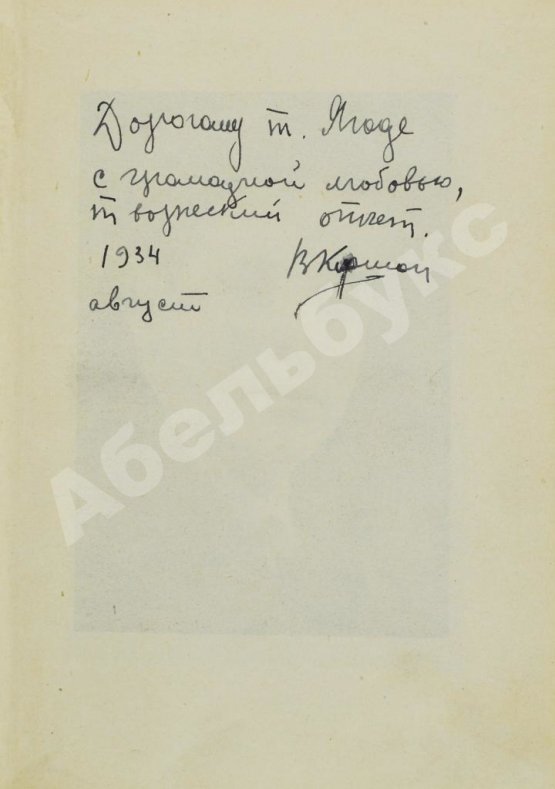 Дорогому т. Ягоде
с громадной любовью,
творческий отчет.
1934 ВКиршон
август
Абельбукс